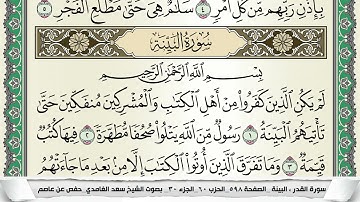 بِإِذْنِ رَبِّهِم مِّن كُلِّ أَمْرٍ ٤ سَلَٰمٌ هِىَ حَتَّىٰ مَطْلَعِ ٱلْفَجْرِ ٥
سُورَةُ الْبَيِّنَةِ
بِسْمِ ٱللَّهِ ٱلرَّحْمَٰنِ ٱلرَّحِيمِ
لَمْ يَكُنِ ٱلَّذِينَ كَفَرُوا۟ مِنْ أَهْلِ ٱلْكِتَٰبِ وَٱلْمُشْرِكِينَ مُنفَكِّينَ حَتَّىٰ
تَأْتِيَهُمُ ٱلْبَيِّنَةُ ١ رَسُولٌ مِّنَ ٱللَّهِ يَتْلُوا۟ صُحُفًا مُّطَهَّرَةً ٢ فِيهَا كُتُبٌ
قَيِّمَةٌ ٣ وَمَا تَفَرَّقَ ٱلَّذِينَ أُوتُوا۟ ٱلْكِتَٰبَ إِلَّا مِنۢ بَعْدِ مَا جَآءَتْهُمُ
سورة القدر ، البينة . الصفحة ٥٩٨ الحزب ٦٠ الجزء ٣٠ . بصوت الشيخ سعد الغامدي حفص عن عاصم